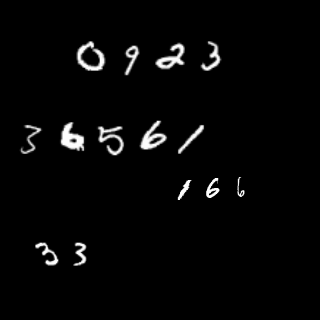 0923
36561
166
33